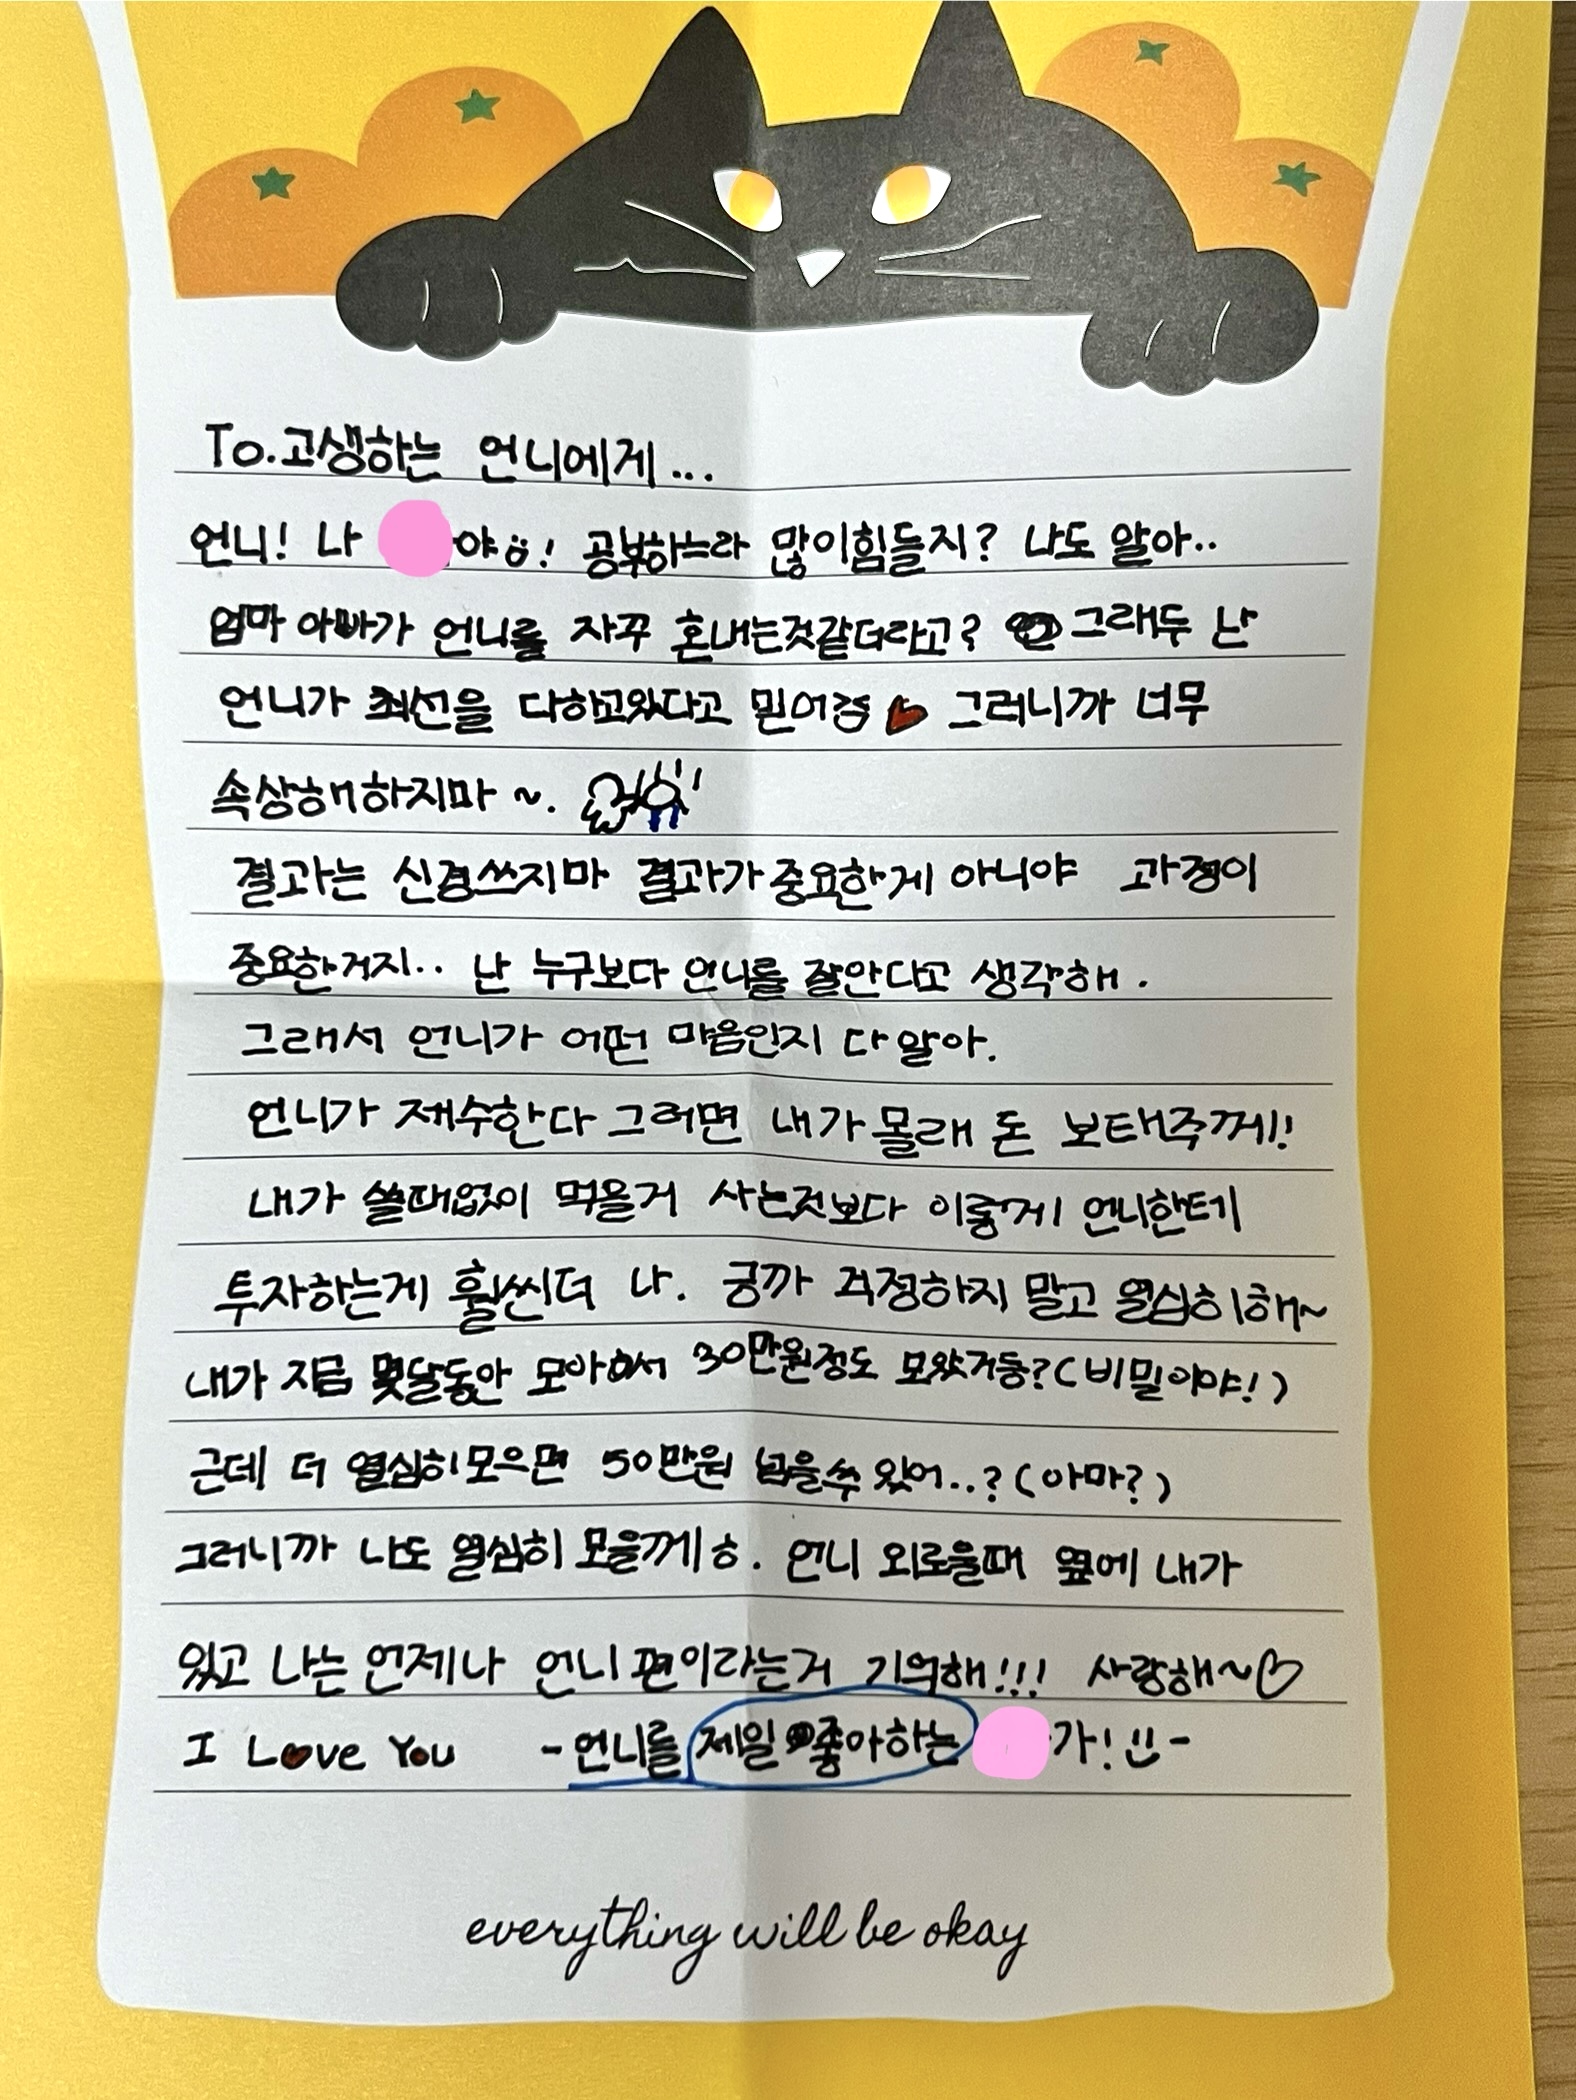 To.고생하는 언니에게...
언니! 나 야ㅎ! 공부하느라 많이힘들지? 나도 알아..
엄마 아빠가 언니를 자꾸 혼내는것같더라고? 그래두 난
언니가 최선을 다하고있다고 믿어용 그러니까 너무
속상해하지마 ~.
결과는 신경쓰지마 결과가 중요한게 아니야 과정이
중요한거지.. 난 누구보다 언니를 잘안다고 생각해.
그래서 언니가 어떤 마음인지 다 알아.
언니가 재수한다 그러면 내가 몰래 돈 보태주께!!
내가 쓸때없이 먹을거 사는것보다 이렇게 언니한테
투자하는게 훨씬더 나. 긍까 걱정하지 말고 열심히해~
내가 지금 몇달동안 모아서 30만원정도 모았거등?(비밀이야!)
근데 더 열심히모으면 50만원 넘을수 있어..?(아마?)
그러니까 나도 열심히 모을께ㅎ. 언니 외로울때 옆에 내가
있고 나는 언제나 언니편이라는거 기억해!!! 사랑해~♡
I Love You -언니를 제일 좋아하는 가!-
everything will be okay